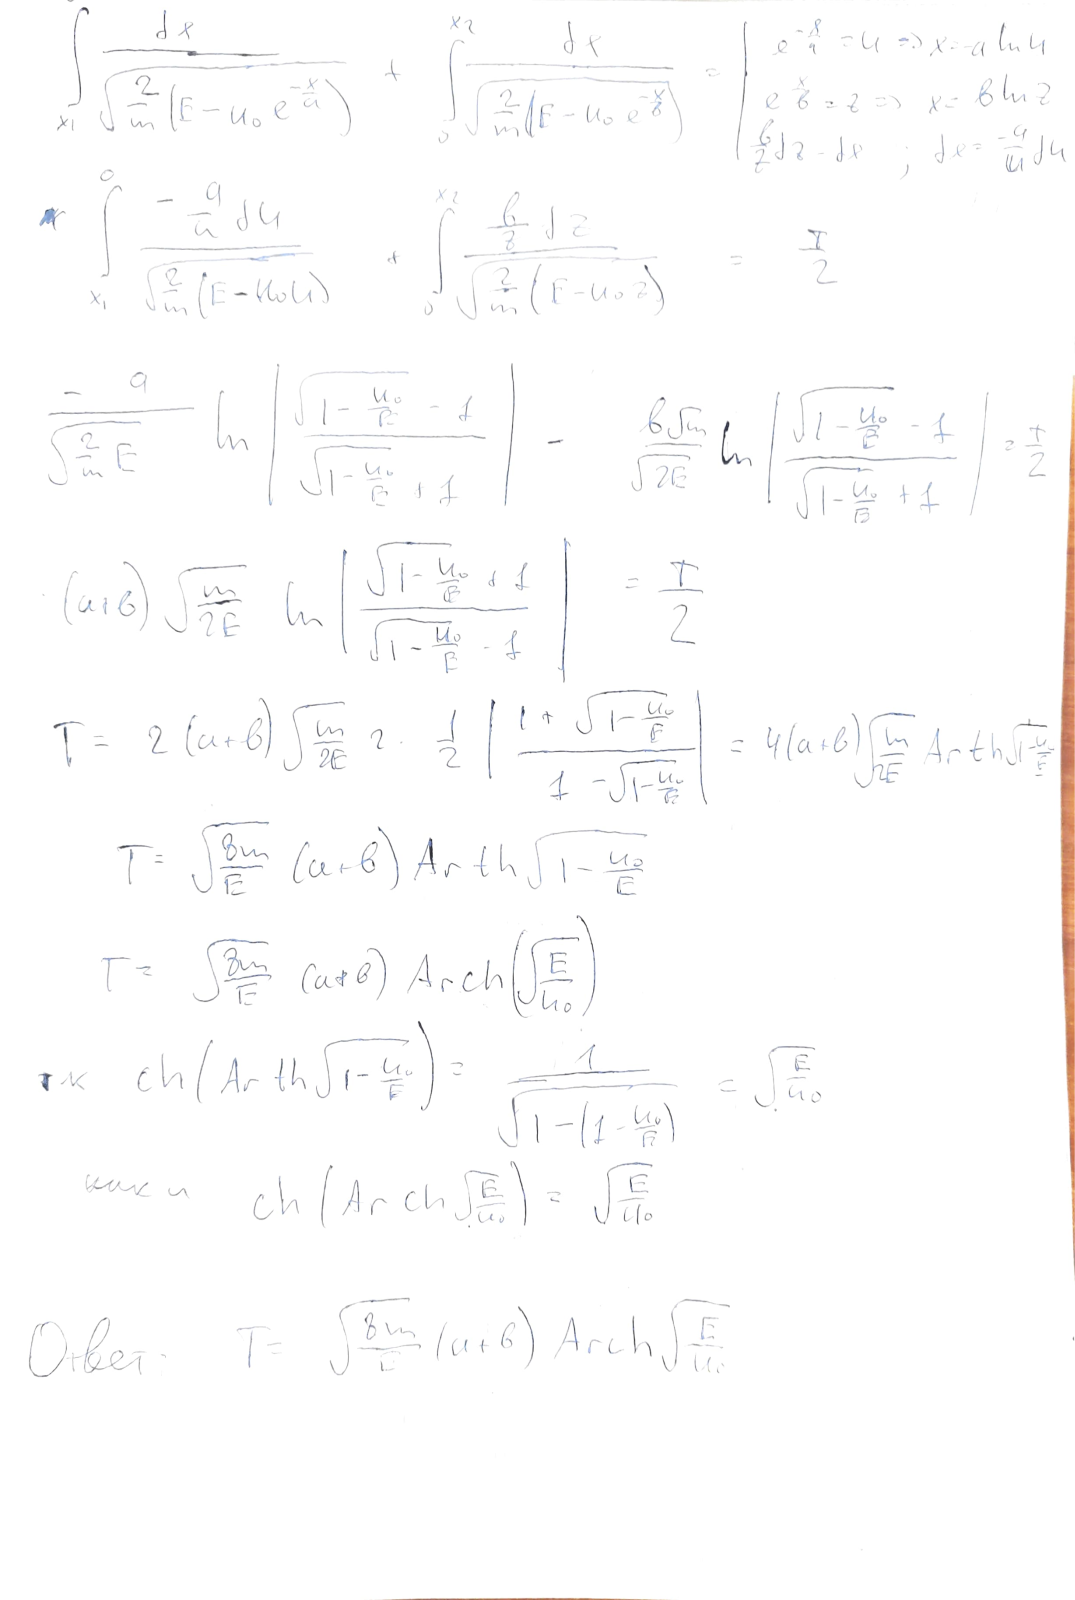 ∫_{x₁}^{0} dx / √(2/m (E − U₀ e^{−x/a})) + ∫_{0}^{x₂} dx / √(2/m (E − U₀ e^{x/в})) = | e^{−x/a} = U ⇒ x = −a ln U
e^{x/в} = z ⇒ x = в ln z
в/z dz = dx ; dx = −a/U dU
∫_{x₁}^{0} −a/U dU / √(2/m (E − U₀U)) + ∫_{0}^{x₂} в/z dz / √(2/m (E − U₀z)) = T/2
−a / √(2/m E) ln | (√(1 − U₀/E) − 1) / (√(1 − U₀/E) + 1) | − в√m / √(2E) ln | (√(1 − U₀/E) − 1) / (√(1 − U₀/E) + 1) | = T/2
(a+в) √(m/2E) ln | (√(1 − U₀/E) + 1) / (√(1 − U₀/E) − 1) | = T/2
T = 2 (a+в) √(m/2E) 2 · 1/2 | (1 + √(1 − U₀/E)) / (1 − √(1 − U₀/E)) | = 4(a+в) √(m/2E) Arth √(1 − U₀/E)
T = √(8m/E) (a+в) Arth √(1 − U₀/E)
T = √(8m/E) (a+в) Arch(√(E/U₀))
тк ch(Arth √(1 − U₀/E)) = 1 / √(1 − (1 − U₀/E)) = √(E/U₀)
как и ch(Arch √(E/U₀)) = √(E/U₀)
Ответ: T = √(8m/E) (a+в) Arch √(E/U₀)